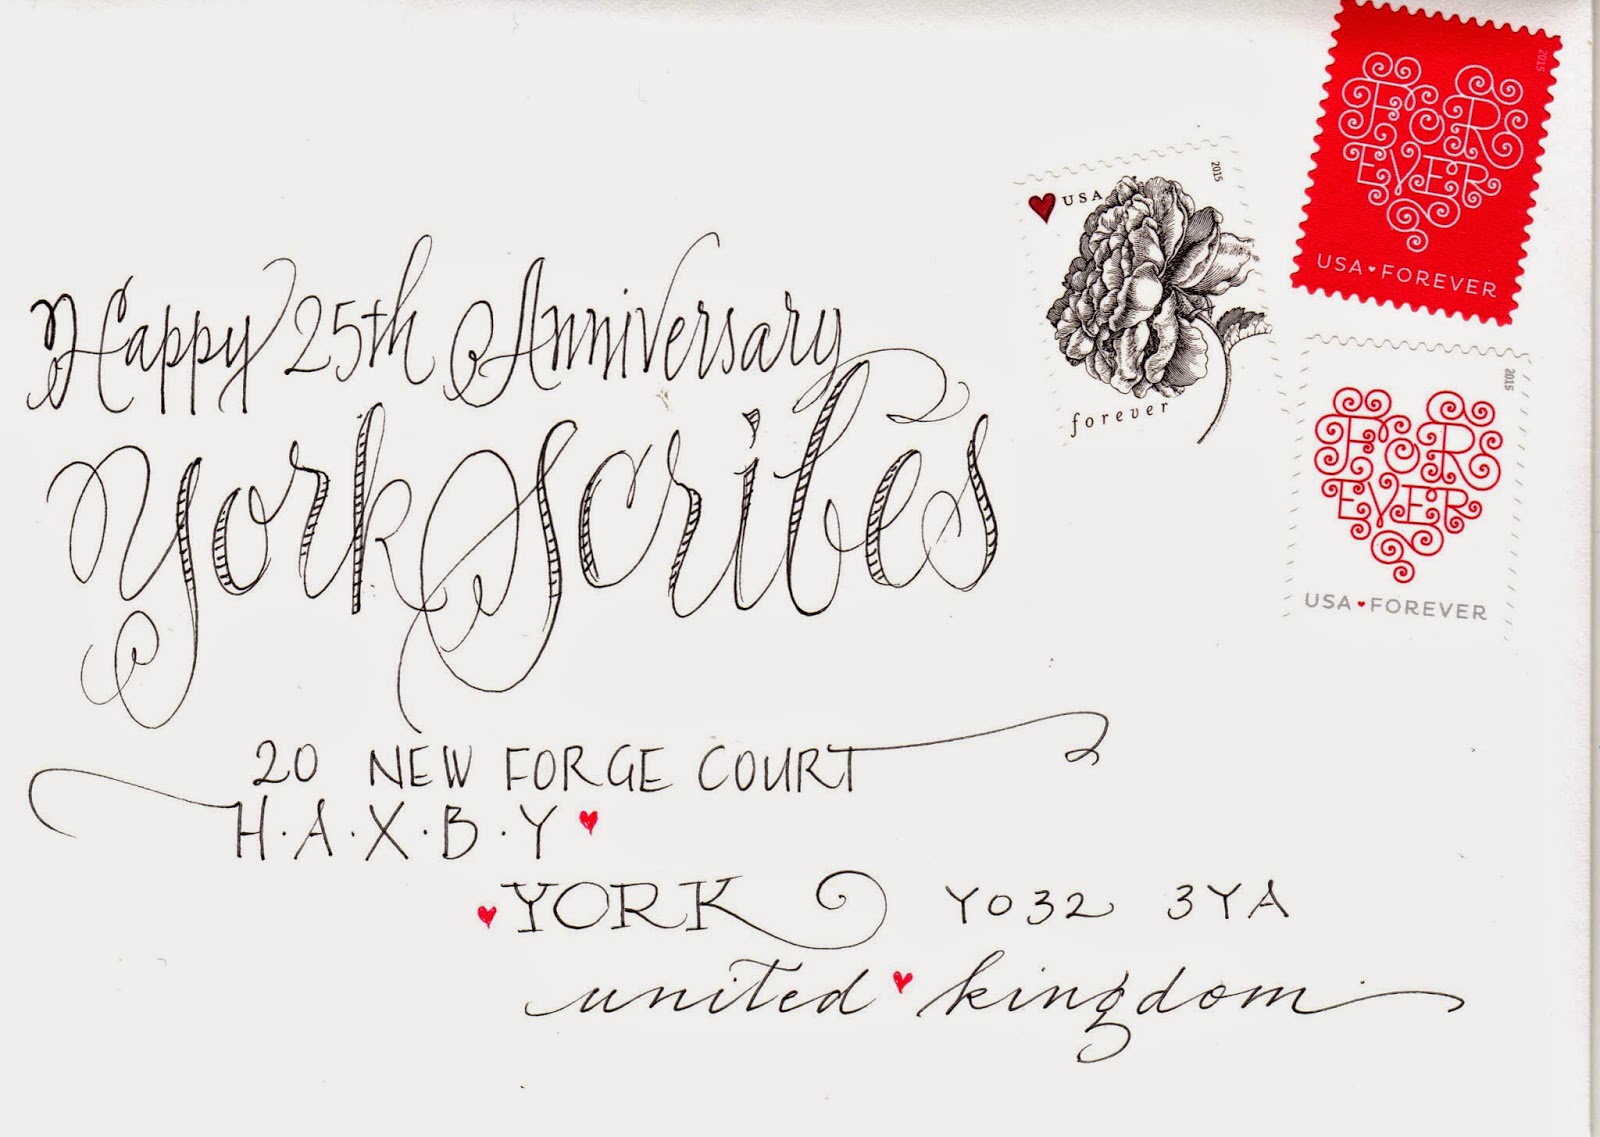 2015
FOR
EVER
USA FOREVER
USA
2015
forever
2015
FOR
EVER
USA FOREVER
Happy 25th Anniversary
York Scribes
20 NEW FORGE COURT
H·A·X·B·Y
YORK YO32 3YA
united kingdom